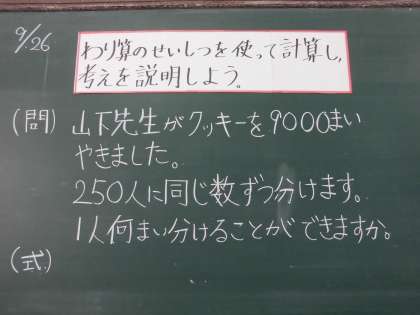 9/26
わり算のせいしつを使って計算し,
考えを説明しよう。
(問) 山下先生がクッキーを9000まい
やきました。
250人に同じ数ずつ分けます。
1人何まい分けることができますか。
(式)